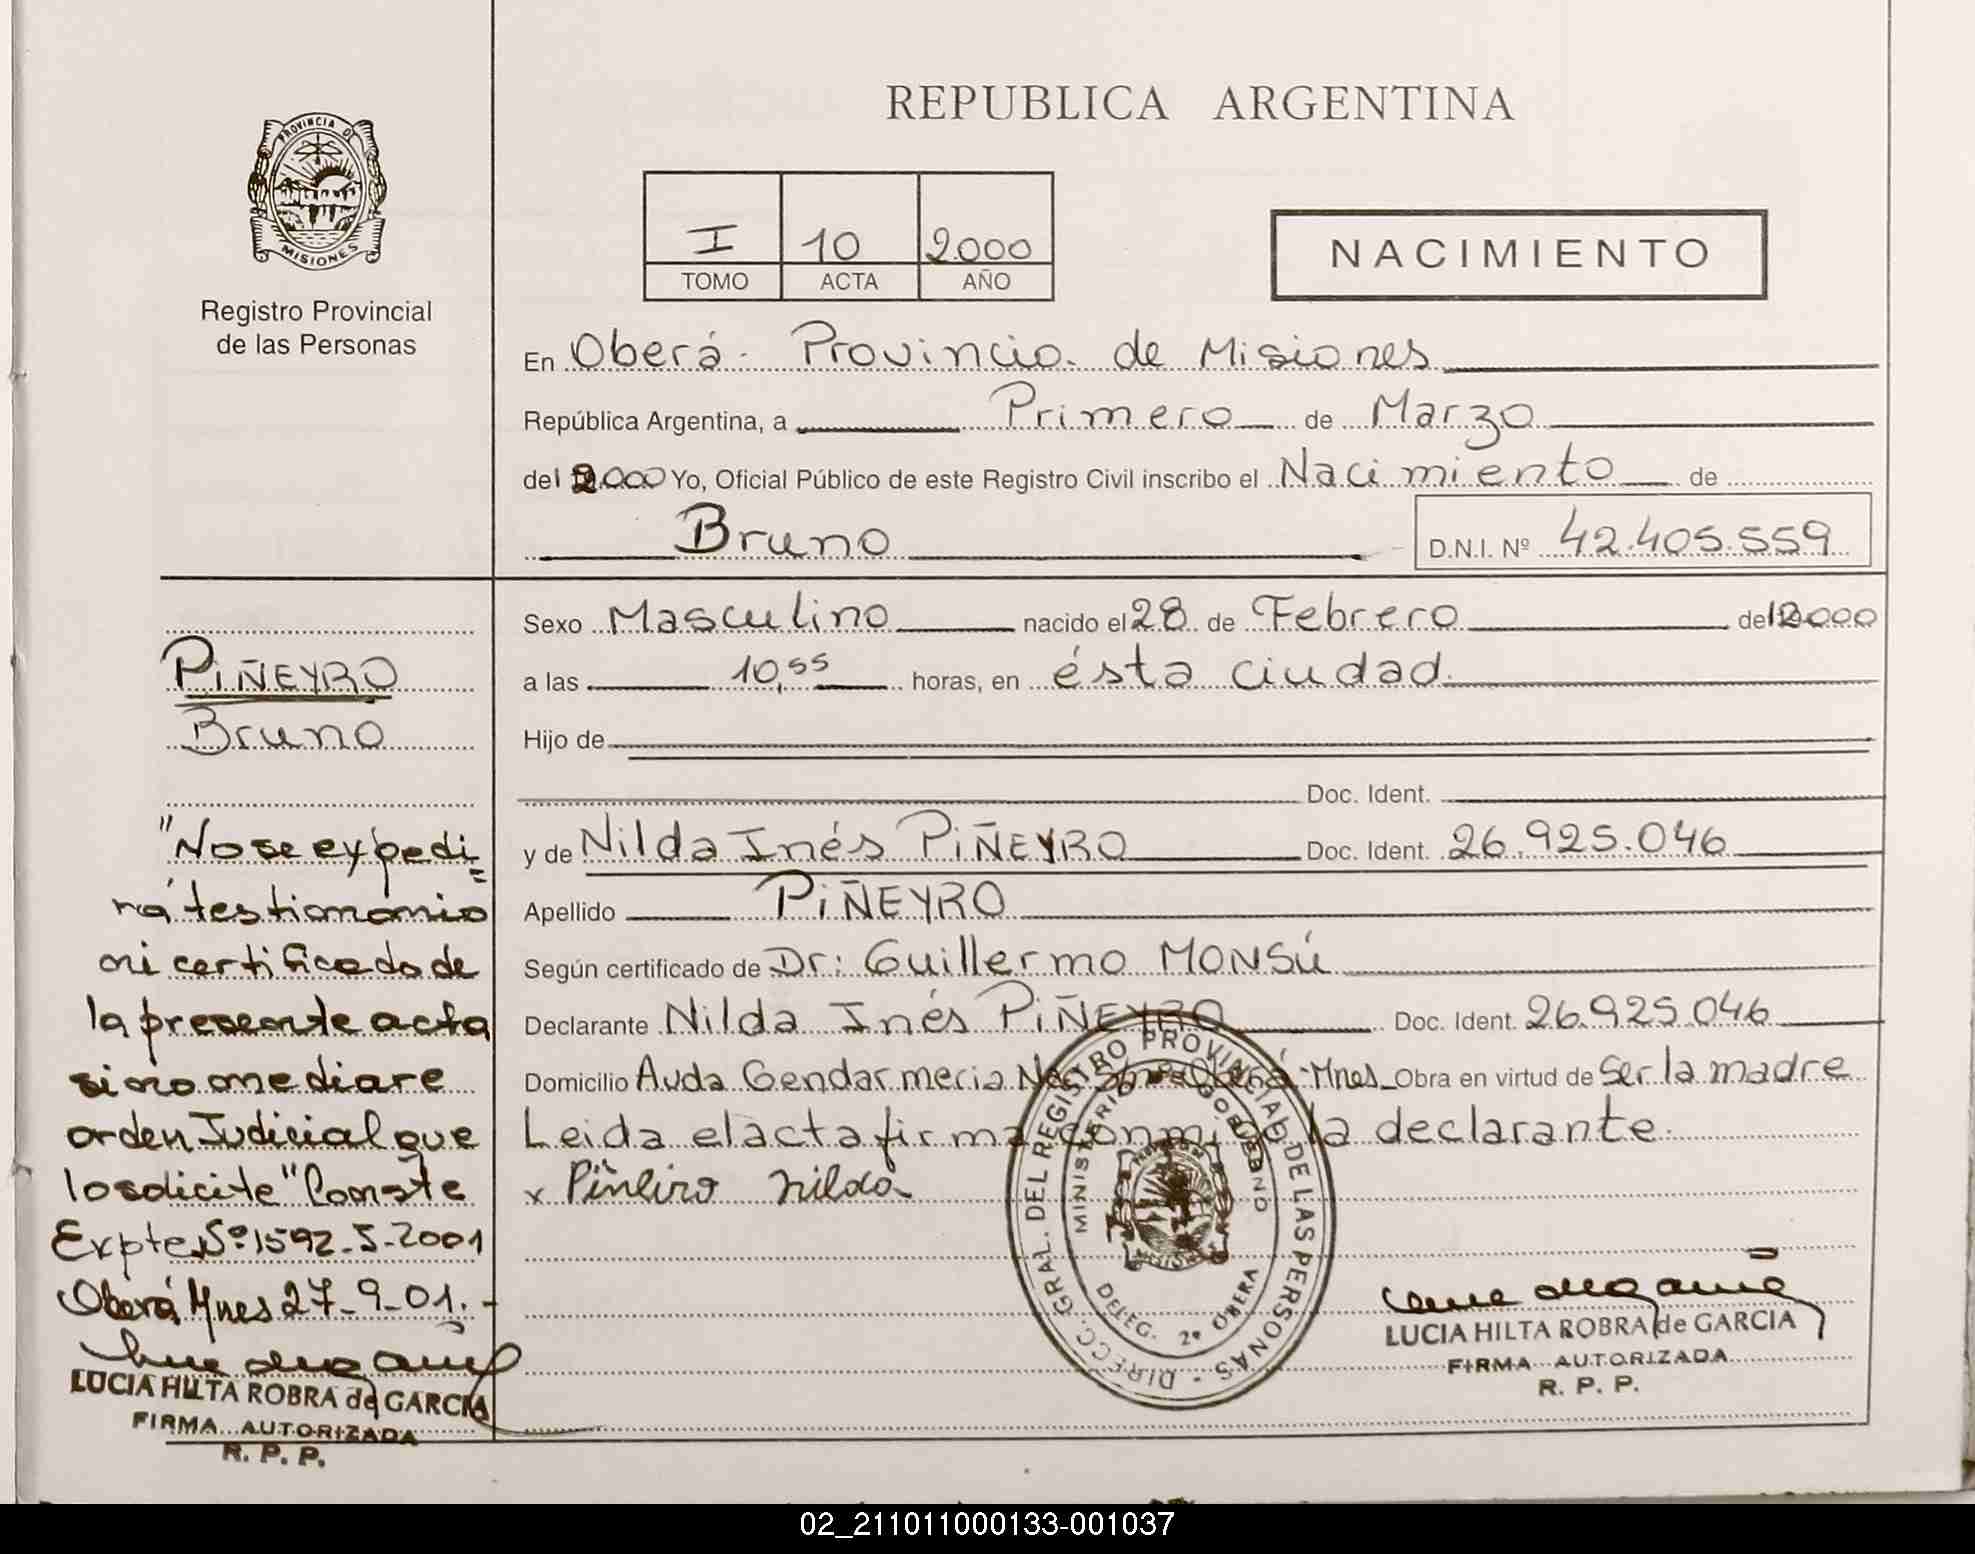 REPUBLICA ARGENTINA
PROVINCIA DE
MISIONES
Registro Provincial
de las Personas
I 10 2.000
TOMO ACTA AÑO
NACIMIENTO
En Oberá. Provincia de Misiones
República Argentina, a Primero de Marzo
del 2.000 Yo, Oficial Público de este Registro Civil inscribo el Nacimiento de
Bruno D.N.I. Nº 42.405.559
Sexo Masculino nacido el 28 de Febrero de 2000
a las 10,55 horas, en ésta ciudad.
Hijo de
Doc. Ident.
y de Nilda Inés PiÑEYRO Doc. Ident. 26.925.046
Apellido PiÑEYRO
Según certificado de Dr: Guillermo MONSÚ
Declarante Nilda Inés PiÑEYRO Doc. Ident. 26.925.046
Domicilio Avda Gendarmeria Oberá-Mnes_Obra en virtud de Ser la madre
Leida el acta firma conmigo la declarante.
x Piñeiro nilda
PiÑEYRO
Bruno
"No se expedi
rá testimonio
ni certificado de
la presente acta
si no mediare
orden Judicial que
lo solicite" Conste
Expte Nº 1592-S-2001
Oberá Mnes 27-9-01.-
LUCIA HILTA ROBRA de GARCIA
FIRMA AUTORIZADA
R. P. P.
DIRECC. GRAL. DEL REGISTRO PROVINCIAL DE LAS PERSONAS
MINISTERIO DE GOBIERNO
DELEG. 2ª OBERA
LUCIA HILTA ROBRA de GARCIA
FIRMA AUTORIZADA
R. P. P.
02_211011000133-001037